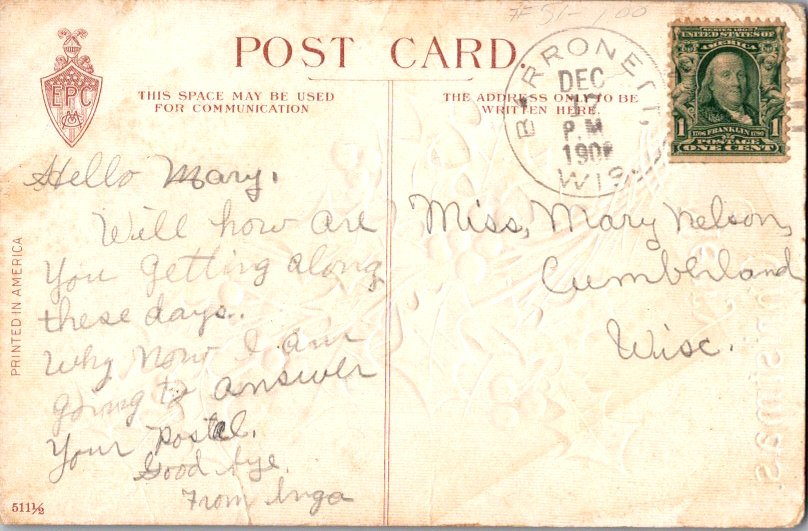 FF 51- 1 00
POST CARD.
THIS SPACE MAY BE USED
FOR COMMUNICATION
THE ADDRESS ONLY TO BE
WRITTEN HERE.
EPC
BARRONETT,
DEC
P.M
190
WIS.
SERIES 1902
UNITED STATES OF
AMERICA
1 1706 FRANKLIN 1790 1
POSTAGE
ONE CENT
Hello Mary,
Will how are
You getting along
these days.
Why Now I am
going to answer
Your postel.
Good bye.
From Inga
Miss, Mary Nelson,
Cumberland
Wisc.
PRINTED IN AMERICA
511½